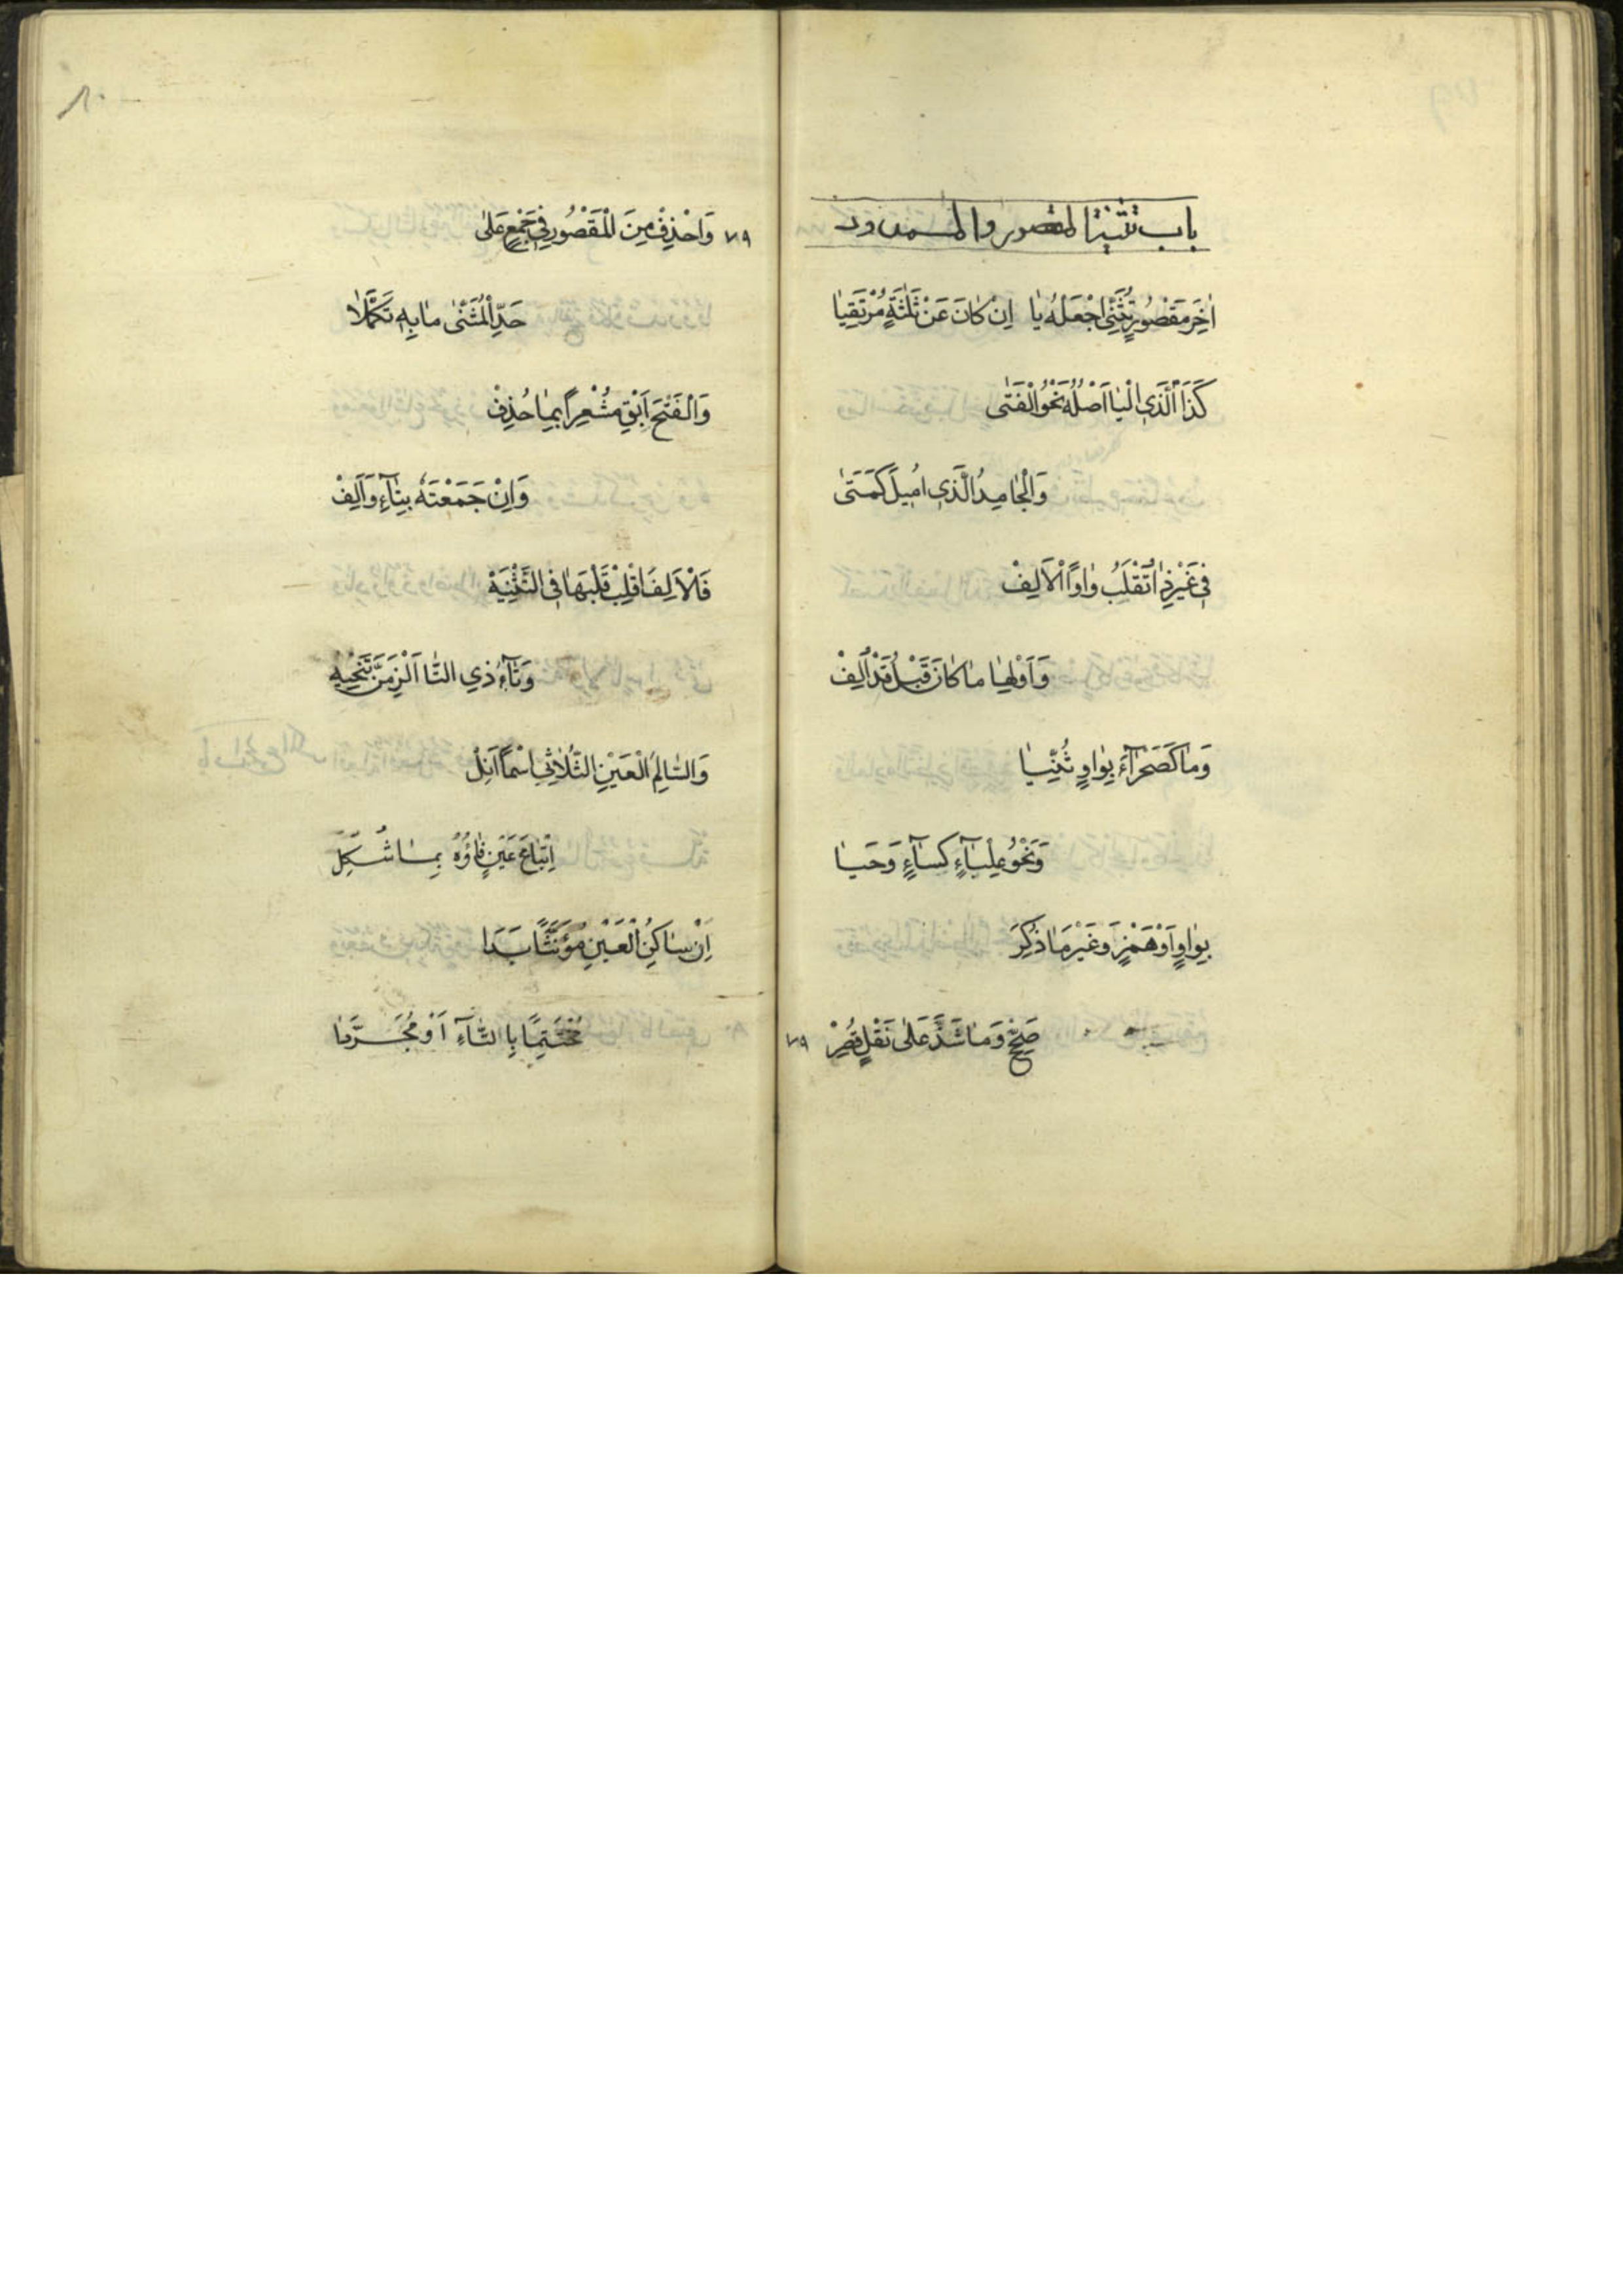 باب تثنية المقصور والممدود
اٰخِرَ مَقْصُورٍ تُثَنِّي اجْعَلْهُ يا اِنْ كانَ عَنْ ثَلٰثَةٍ مُرْتَقِيا
كَذَا الَّذِي الْيا اَصْلُهُ نَحْوُ الْفَتٰى
وَالْجامِدُ الَّذِي اُمِيلَ كَمَتٰى
فِي غَيْرِ ذا تُقْلَبُ واوًا الْاَلِفْ
وَاَوْلِها ما كانَ قَبْلُ قَدْ اُلِفْ
وَما كَصَحْرآءَ بِواوٍ ثُنِّيا
وَنَحْوُ عِلْبآءٍ كِسآءٍ وَحَيا
بِواوٍ اَوْ هَمْزٍ وَغَيْرَ ما ذُكِرَ
صَحِّحْ وَما شَذَّ عَلٰى نَقْلٍ قُصِرْ ٧٩
٧٩ وَاحْذِفْ مِنَ الْمَقْصُورِ فِي جَمْعٍ عَلٰى
حَدِّ الْمُثَنّٰى ما بِهِ تَكَمَّلا
وَالْفَتْحَ اَبْقِ مُشْعِرًا بِما حُذِفْ
وَاِنْ جَمَعْتَهُ بِتآءٍ وَاَلِفْ
فَالْاَلِفَ اقْلِبْ قَلْبَها فِي التَّثْنِيَةْ
وَتآءَ ذِي التّا اَلْزِمَنَّ تَنْحِيَةْ
وَالسّالِمَ الْعَيْنِ الثُّلاثِي اسْمًا اَنِلْ
اِتْباعَ عَيْنٍ فاؤُهُ بِما شُكِلْ
اِنْ ساكِنَ الْعَيْنِ مُؤَنَّثًا بَدا
مُخْتَتِمًا بِالتّآءِ اَوْ مُجَرَّدا
٨٠